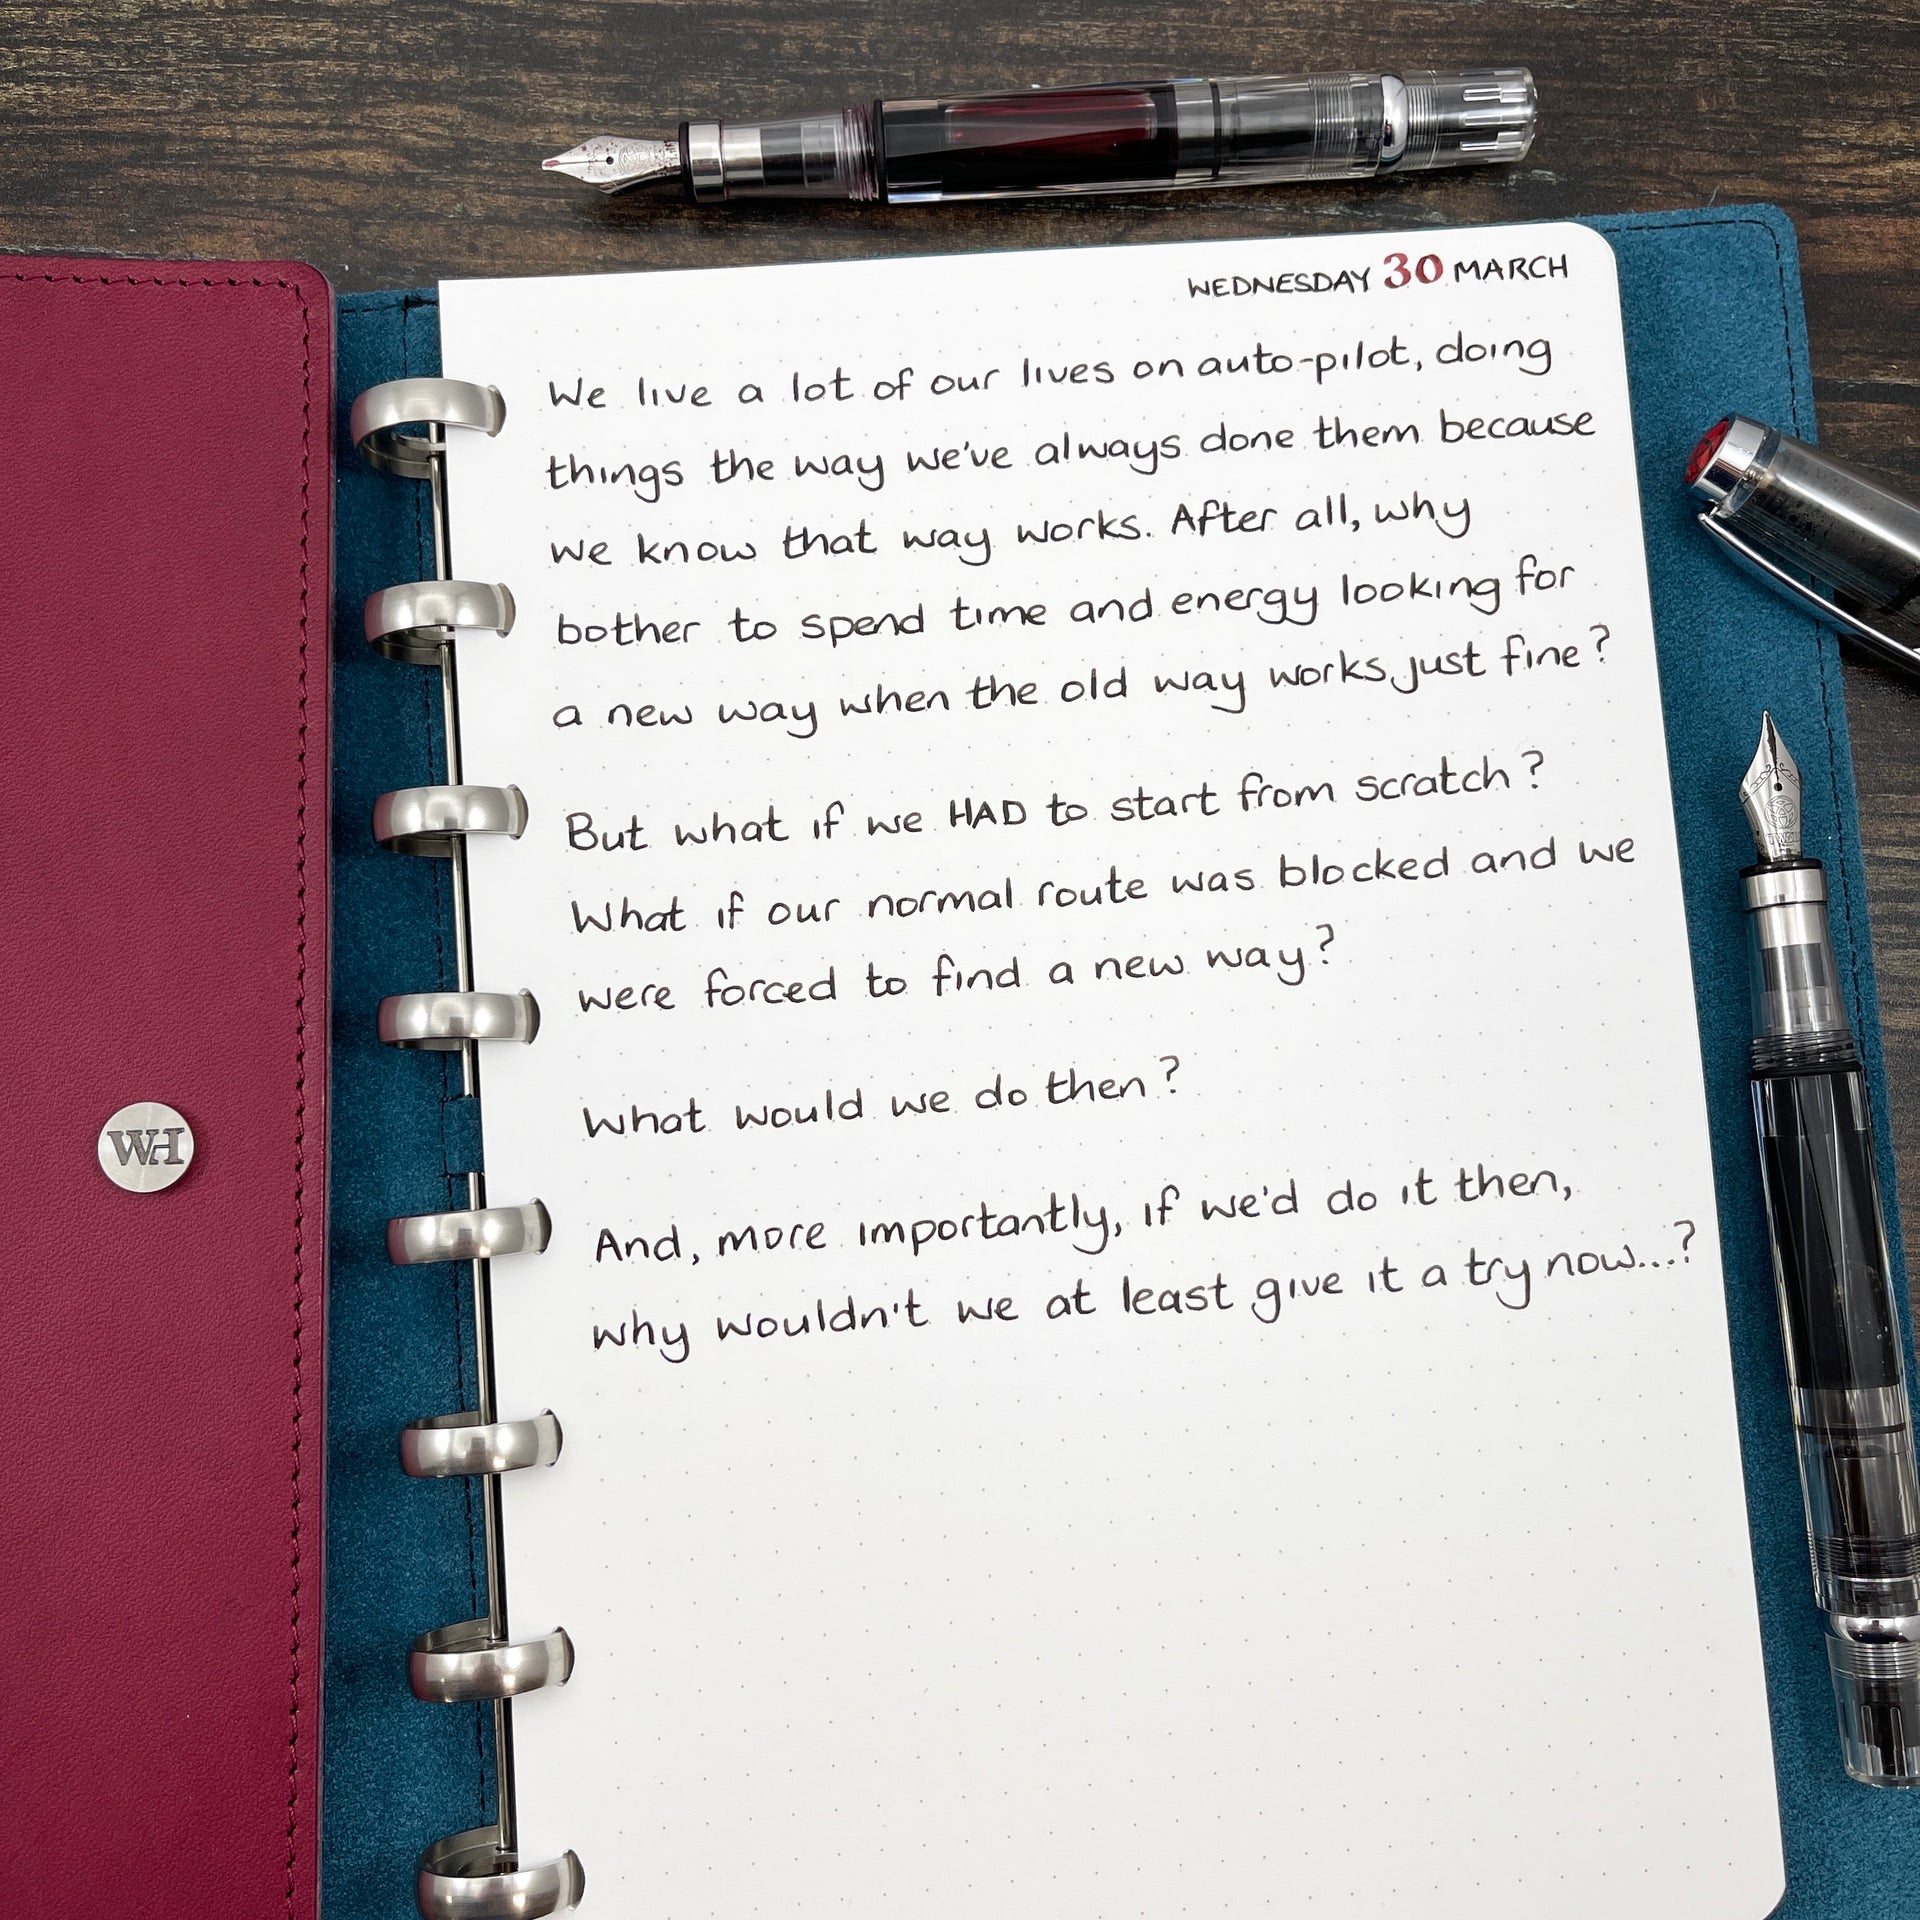 WEDNESDAY 30 MARCH
We live a lot of our lives on auto-pilot, doing
things the way we've always done them because
we know that way works. After all, why
bother to spend time and energy looking for
a new way when the old way works just fine?
But what if we HAD to start from scratch?
What if our normal route was blocked and we
were forced to find a new way?
What would we do then?
And, more importantly, if we'd do it then,
why wouldn't we at least give it a try now...?
WH